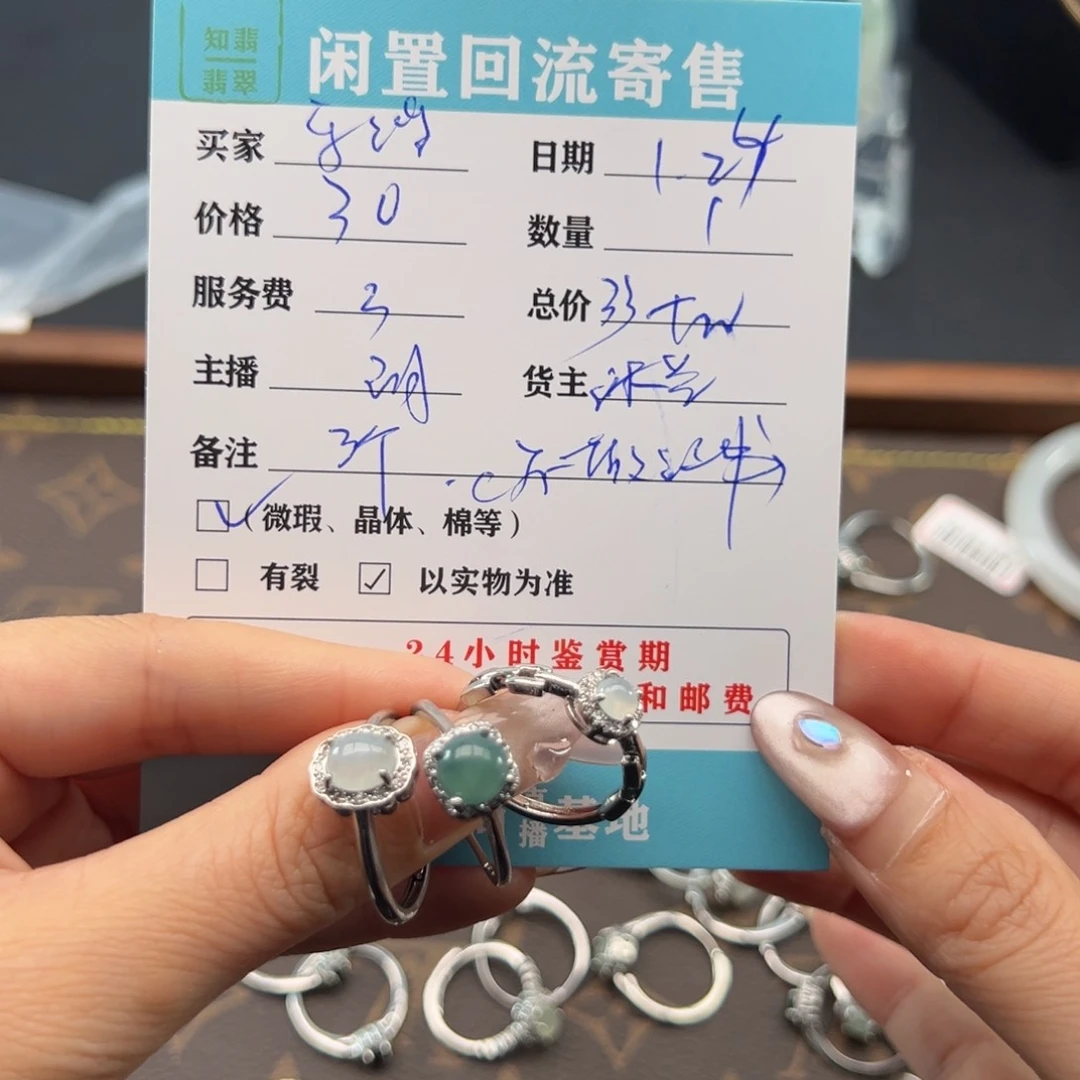 知翡
翡翠
闲置回流寄售
买家 日期 1.24
价格 30 数量 1
服务费 3 总价 33
主播 货主
备注 3个
(微瑕、晶体、棉等)
有裂 ✓ 以实物为准
24小时鉴赏期
和邮费
播基地